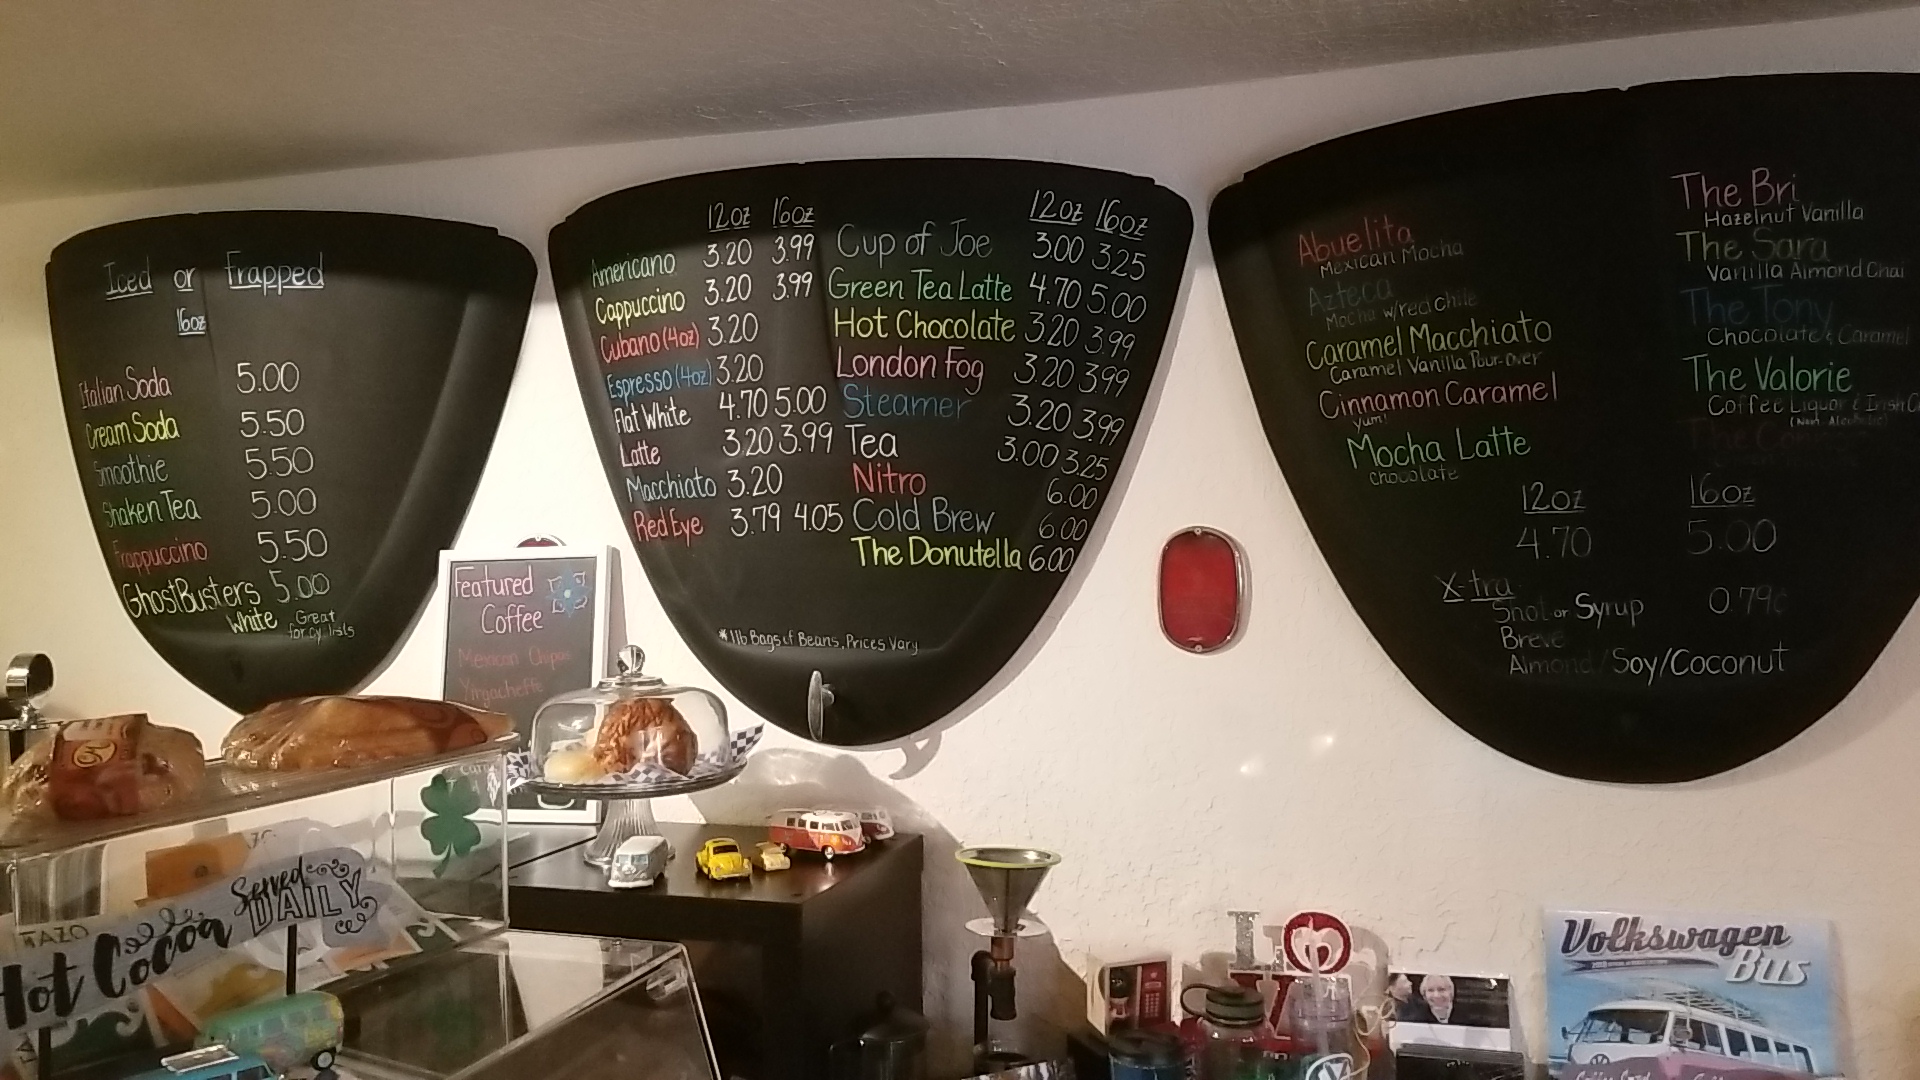 Iced or Frapped
16oz
Italian Soda 5.00
Cream Soda 5.50
Smoothie 5.50
Shaken Tea 5.00
Frappuccino 5.50
GhostBusters 5.00
White Great
for
12oz 16oz
Americano 3.20 3.99
Cappuccino 3.20 3.99
Cubano (4oz) 3.20
Espresso (4oz) 3.20
Flat White 4.70 5.00
Latte 3.20 3.99
Macchiato 3.20
Red Eye 3.79 4.05
12oz 16oz
Cup of Joe 3.00 3.25
Green Tea Latte 4.70 5.00
Hot Chocolate 3.20 3.99
London Fog 3.20 3.99
Steamer 3.20 3.99
Tea 3.00 3.25
Nitro 6.00
Cold Brew 6.00
The Donutella 6.00
*1lb Bags of Beans, Prices Vary
Abuelita
Mexican Mocha
Azteca
Mocha w/red chile
Caramel Macchiato
Caramel Vanilla Pour-over
Cinnamon Caramel
yum!
Mocha Latte
Chocolate
The Bri
Hazelnut Vanilla
The Sara
Vanilla Almond Chai
The Tony
Chocolate & Caramel
The Valorie
Coffee Liquor & Irish
(Non Alcoholic)
The
12oz 16oz
4.70 5.00
X-tra
Shot or Syrup 0.79¢
Breve
Almond/Soy/Coconut
Featured
Coffee
Mexican Chipas
Yirgacheffe
TAZO
Hot Cocoa Served
DAILY
Volkswagen
Bus